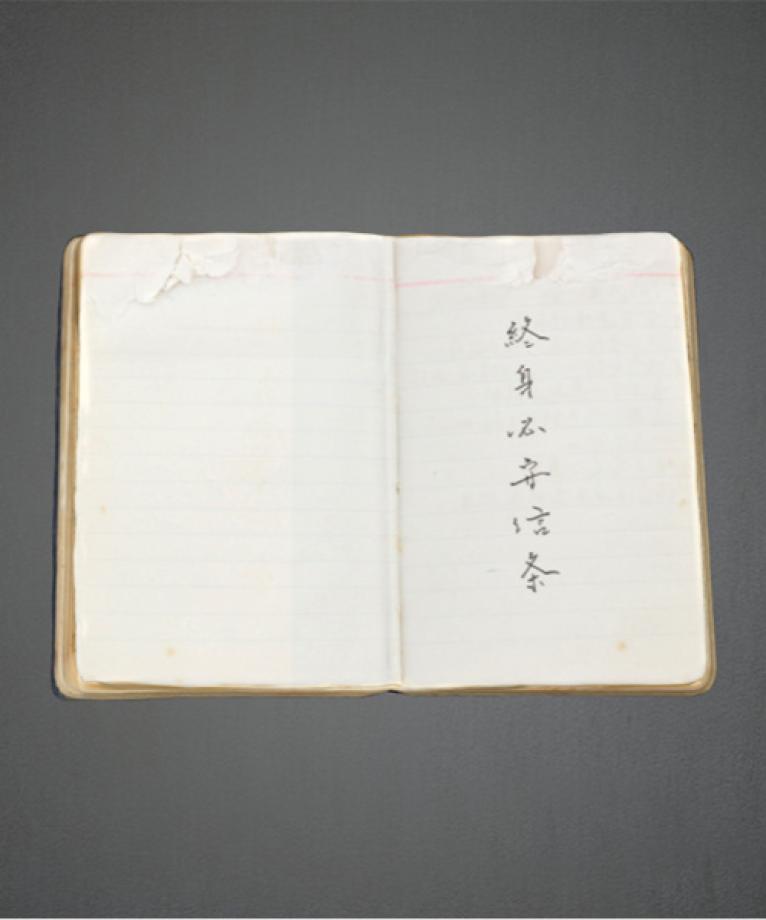 終身必守信条